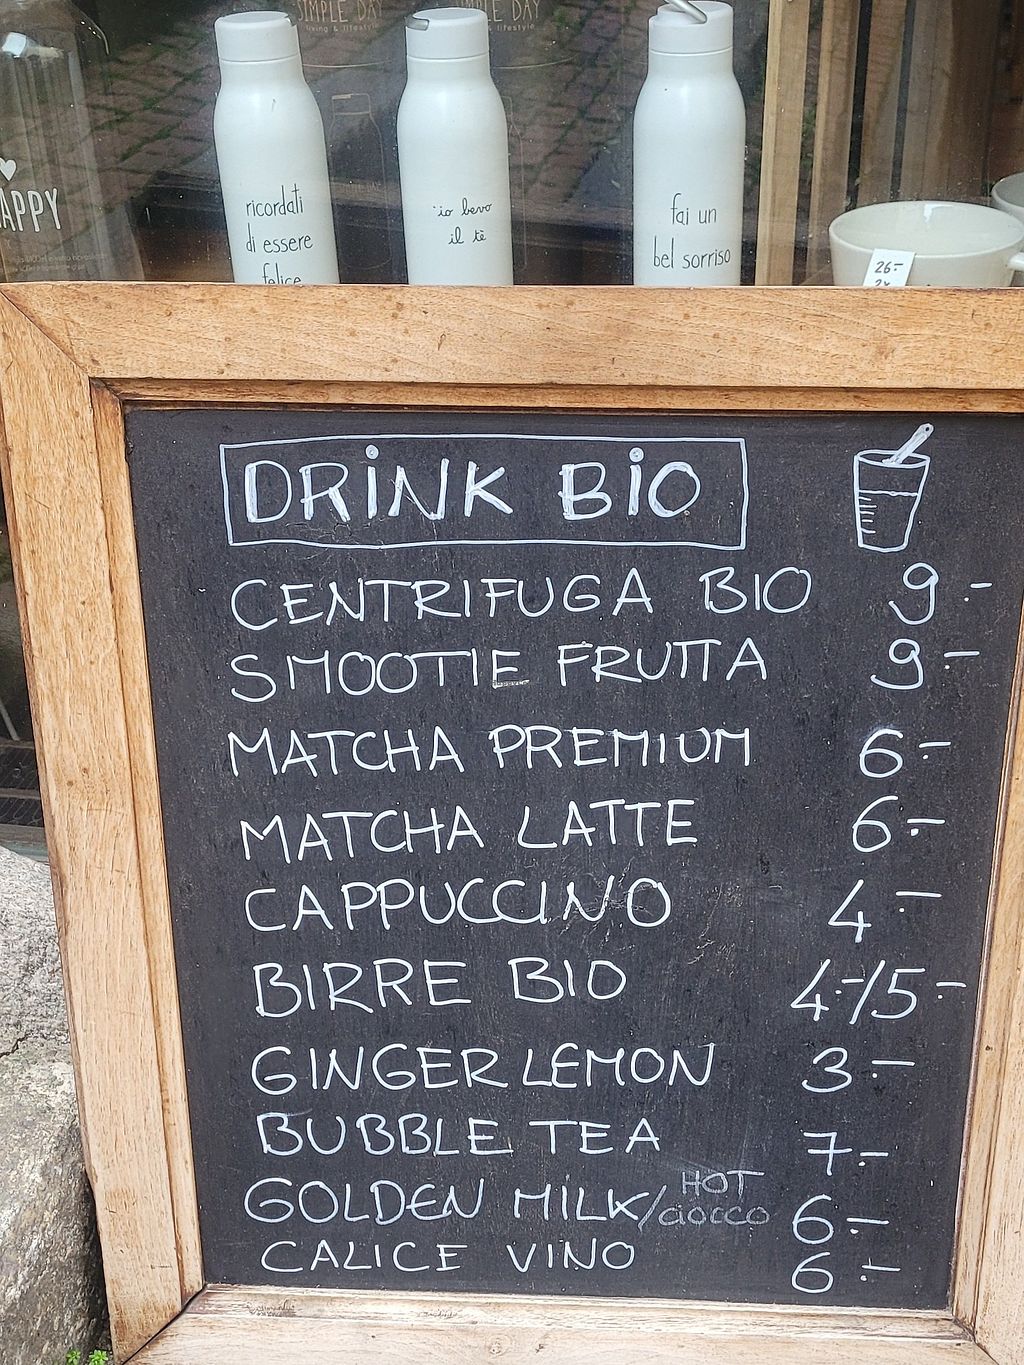 SIMPLE DAY
living & lifestyle
LE DAY
& lifestyle
APPY
ricordati
di essere
felice
io bevo
il tè
fai un
bel sorriso
26.-
DRINK BIO
CENTRIFUGA BIO 9.-
SMOOTIE FRUTTA 9.-
MATCHA PREMIUM 6.-
MATCHA LATTE 6.-
CAPPUCCINO 4.-
BIRRE BIO 4.-/5.-
GINGER LEMON 3.-
BUBBLE TEA 7.-
GOLDEN MILK/HOT CIOCCO 6.-
CALICE VINO 6.-